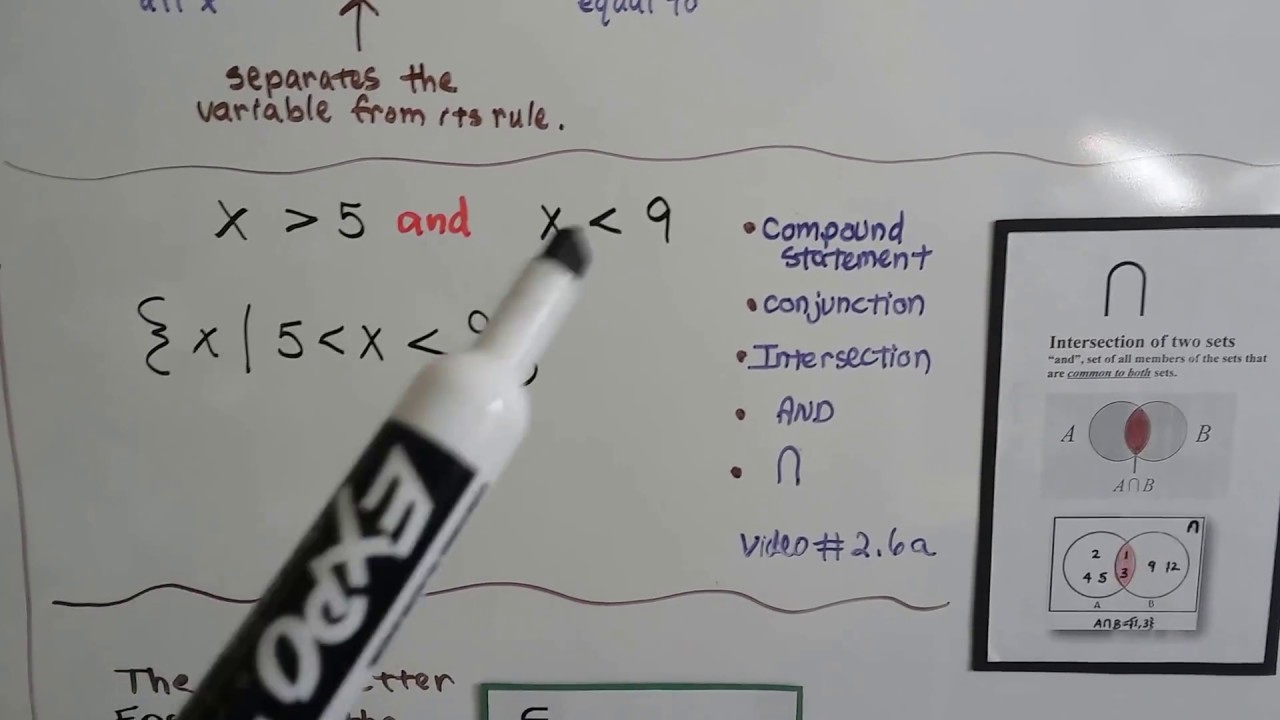 all x
equal to
separates the
variable from its rule.
x > 5 and x < 9
{ x | 5 < x < 9
• Compound
statement
• conjunction
• Intersection
• AND
• ∩
Video # 2.6a
∩
Intersection of two sets
"and", set of all members of the sets that
are common to both sets.
A B
A∩B
∩
2 1
9 12
4 5 3
A B
A∩B={1,3}
EXPO
The